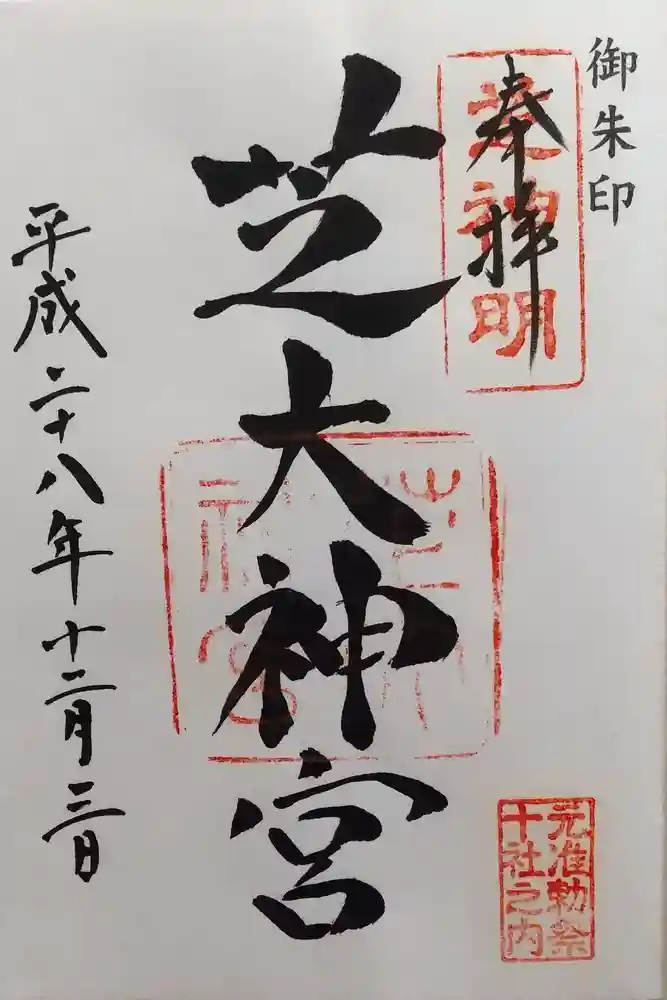 御朱印
奉拝
芝神明
芝大神宮
平成二十八年十二月三日
元准勅祭
十社之内